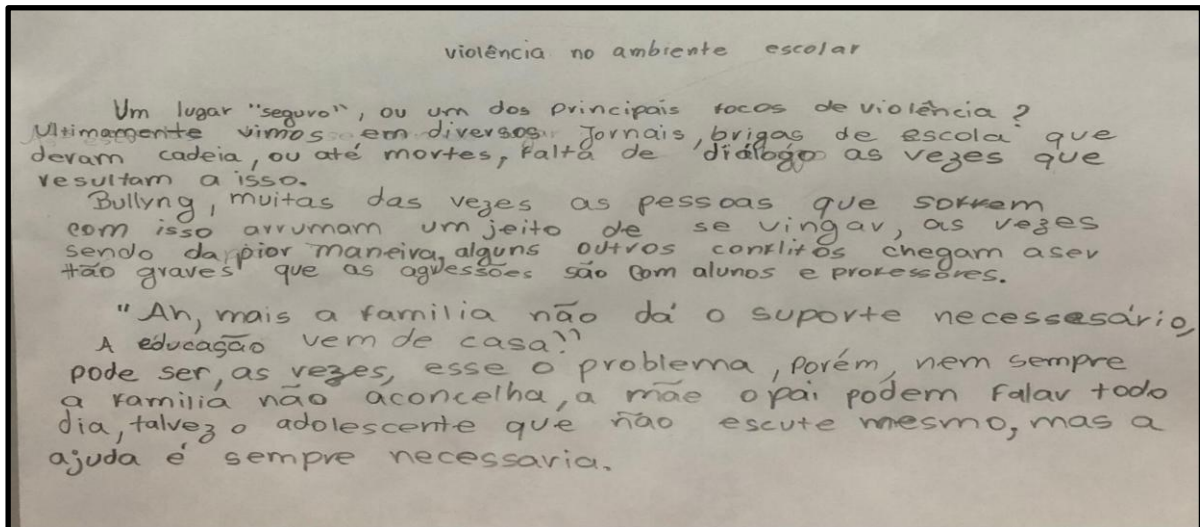 violência no ambiente escolar
Um lugar "seguro", ou um dos principais focos de violência?
Ultimamente vimos em diversos Jornais, brigas de escola que
devam cadeia, ou até mortes, falta de diálogo as vezes que
resultam a isso.
Bullyng, muitas das vezes as pessoas que sofrem
com isso arrumam um jeito de se vingar, as vezes
sendo da pior maneira, alguns outros conflitos chegam a ser
tão graves que as agressões são com alunos e professores.
"Ah, mais a familia não dá o suporte necessesário,
A educação vem de casa!"
pode ser, as vezes, esse o problema, porém, nem sempre
a familia não aconcelha, a mãe o pai podem falar todo
dia, talvez o adolescente que não escute mesmo, mas a
ajuda é sempre necessaria.